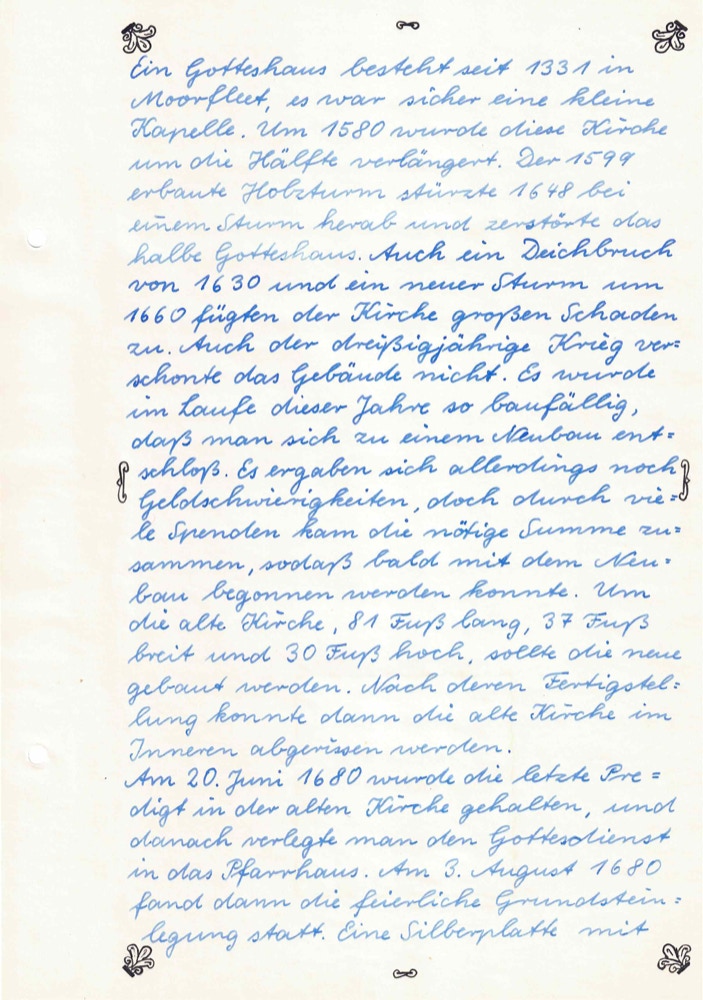 Ein Gotteshaus besteht seit 1331 in
Moorfleet, es war sicher eine kleine
Kapelle. Um 1580 wurde diese Kirche
um die Hälfte verlängert. Der 1599
erbaute Holzturm stürzte 1648 bei
einem Sturm herab und zerstörte das
halbe Gotteshaus. Auch ein Deichbruch
von 1630 und ein neuer Sturm um
1660 fügten der Kirche großen Schaden
zu. Auch der dreißigjährige Krieg ver=
schonte das Gebäude nicht. Es wurde
im Laufe dieser Jahre so baufällig,
daß man sich zu einem Neubau ent=
schloß. Es ergaben sich allerdings noch
Geldschwierigkeiten, doch durch vie=
le Spenden kam die nötige Summe zu=
sammen, sodaß bald mit dem Neu=
bau begonnen werden konnte. Um
die alte Kirche, 81 Fuß lang, 37 Fuß
breit und 30 Fuß hoch, sollte die neue
gebaut werden. Nach deren Fertigstel=
lung konnte dann die alte Kirche im
Inneren abgerissen werden.
Am 20. Juni 1680 wurde die letzte Pre=
digt in der alten Kirche gehalten, und
danach verlegte man den Gottesdienst
in das Pfarrhaus. Am 3. August 1680
fand dann die feierliche Grundstein=
legung statt. Eine Silberplatte mit